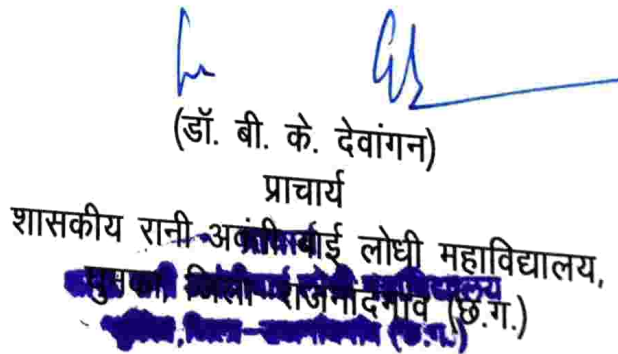 (डॉ. बी. के. देवांगन)
प्राचार्य
शासकीय रानी अवंती बाई लोधी महाविद्यालय,
घुमका, जिला राजनांदगांव (छ.ग.)